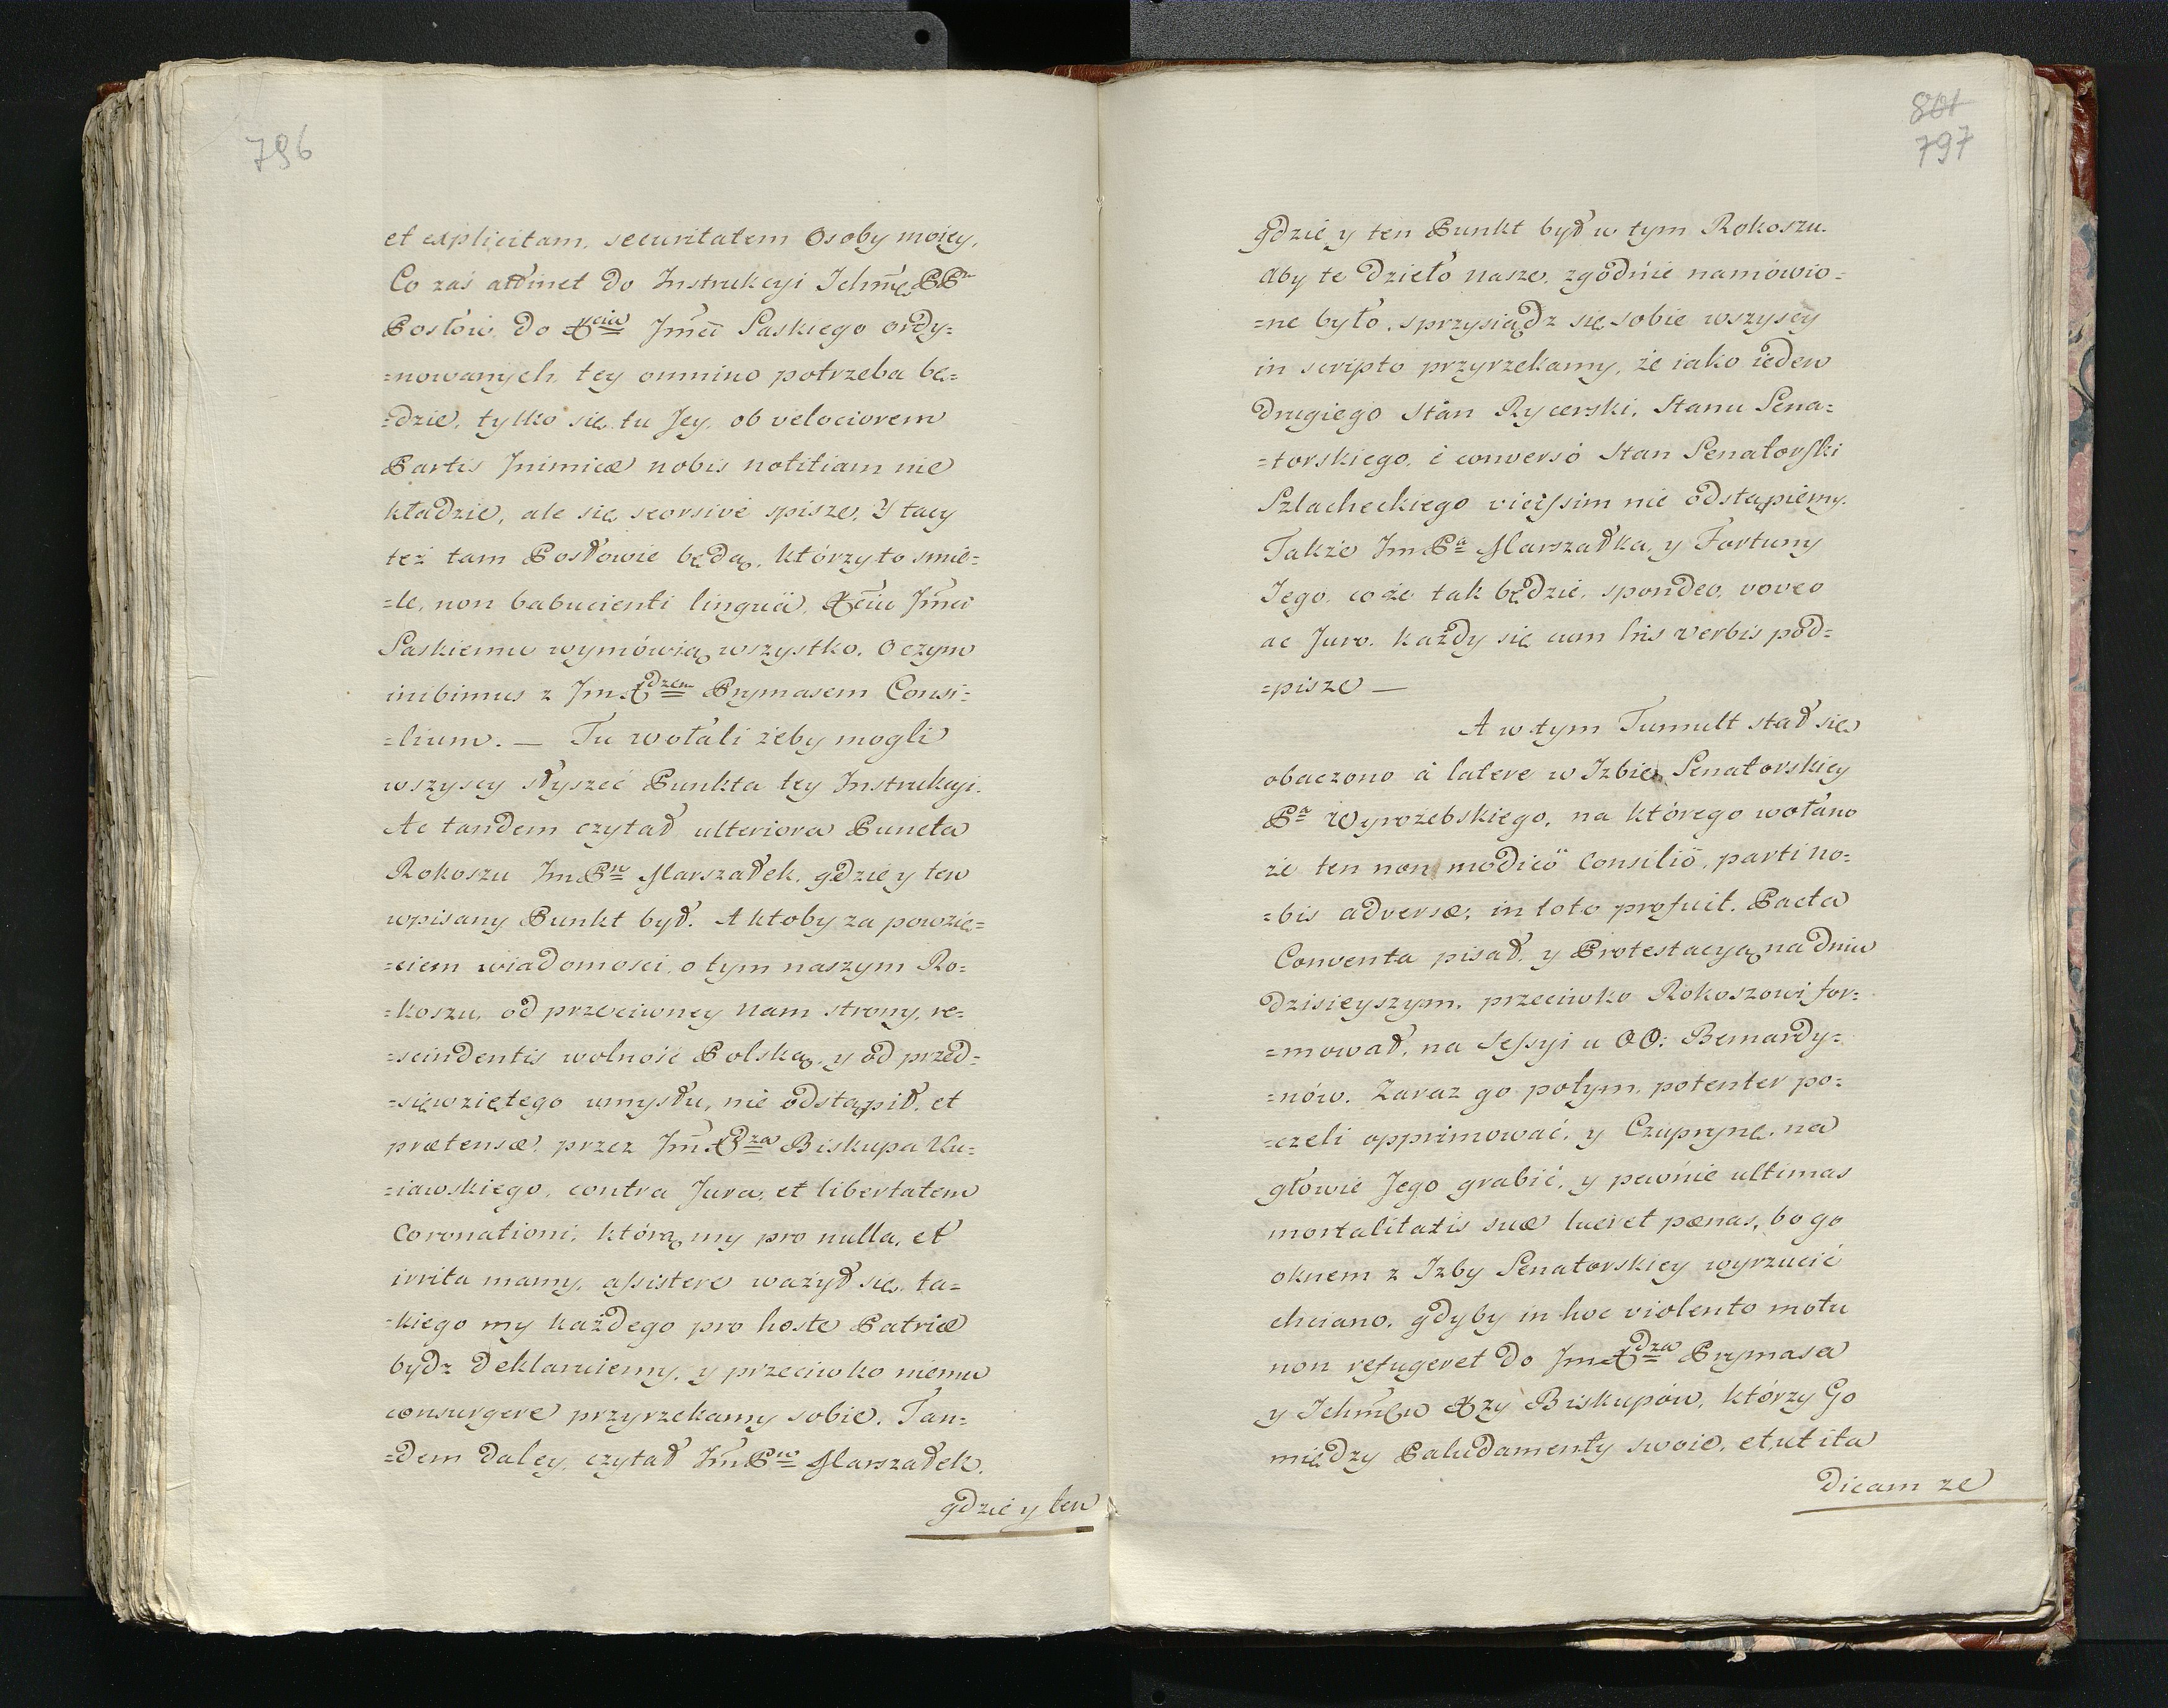 796
et explicitam, securitatem Osoby moiey,
Co zaś attinet do Instrukcyi Ichmc PPn
Posłów, do Xcia Jmci Saskiego ordy=
=nowanych, tey omnino potrzeba bę=
=dzie, tylko się tu Jey, ob velociorem
Partis Inimicæ nobis notitiam nie
kładzie, ale się seorsive spisze, Y tacy
też tam Posłowie będą, którzy to smie=
=le, non babucienti linguä, Xciu Jmci
Saskiemu wymówią wszystko. O czym
inibimus z Jm Xdzem Prymasem Consi=
=lium. — Tu wołali żeby mogli
wszyscy słyszeć Punkta tey Instrukcyi.
Ac tandem czytał ulteriora Puncta
Rokoszu Jm Pn Marszałek, gdzie y ten
wpisany Punkt był. A ktoby za powzię=
=ciem wiadomosci, o tym naszym Ro=
=koszu, od przeciwney nam strony, re=
=scindentis wolność Polską, y od przed=
=sięwziętego umysłu, nie odstąpił, et
prætensæ, przez Jm Xdza Biskupa Ku=
=iawskiego, contra Jura, et libertatem
Coronationi, którą my pro nulla, et
irrita mamy, assistere ważył się, ta=
=kiego my każdego pro hoste Patriæ
bydz deklaruiemy, y przeciwko niemu
consurgere przyrzekamy sobie. Tan=
=dem daley, czytał Jm Pn Marszałek.
gdzie y ten
801
797
gdzie y ten Punkt był w tym Rokoszu.
Aby te dzieło nasze, zgodnie namówio=
=ne było, sprzysiądz się sobie wszyscy
in scripto przyrzekamy, że iako ieden
drugiego Stan Rycerski, Stanu Sena=
=torskiego, é conversó Stan Senatorski
Szlacheckiego vicissim nie odstąpiemy.
Także Jm Pa Marszałka, y Fortuny
Jego, co że tak będzie, spondeo, voveo
ac Juro. każdy się cum his verbis pod=
=pisze —
A w tym Tumult stał się
obaczono á latere w Izbie Senatorskiey
Pa Wyrożebskiego, na którego wołano
że ten non modicö Consiliö, parti no=
=bis adversæ, in toto profuit. Pacta
Conventa pisał, y Protestacyą na dniu
dzisieyszym, przeciwko Rokoszowi for=
=mował, na Sessyi u OO: Bernardy=
=nów. Zaraz go potym, potenter po=
=czeli opprimować, y Czuprynę, na
głowie Jego grabić, y pewnie ultimas
mortalitatis suæ lueret pænas, bo go
oknem z Izby Senatorskiey wyrzucić
chciano, gdyby in hoc violento motu
non refugeret do Jm Xdza Prymasa
y Ichmców Xzy Biskupów, którzy Go
między Paludamenty swoie, et ut ita
dicam ze